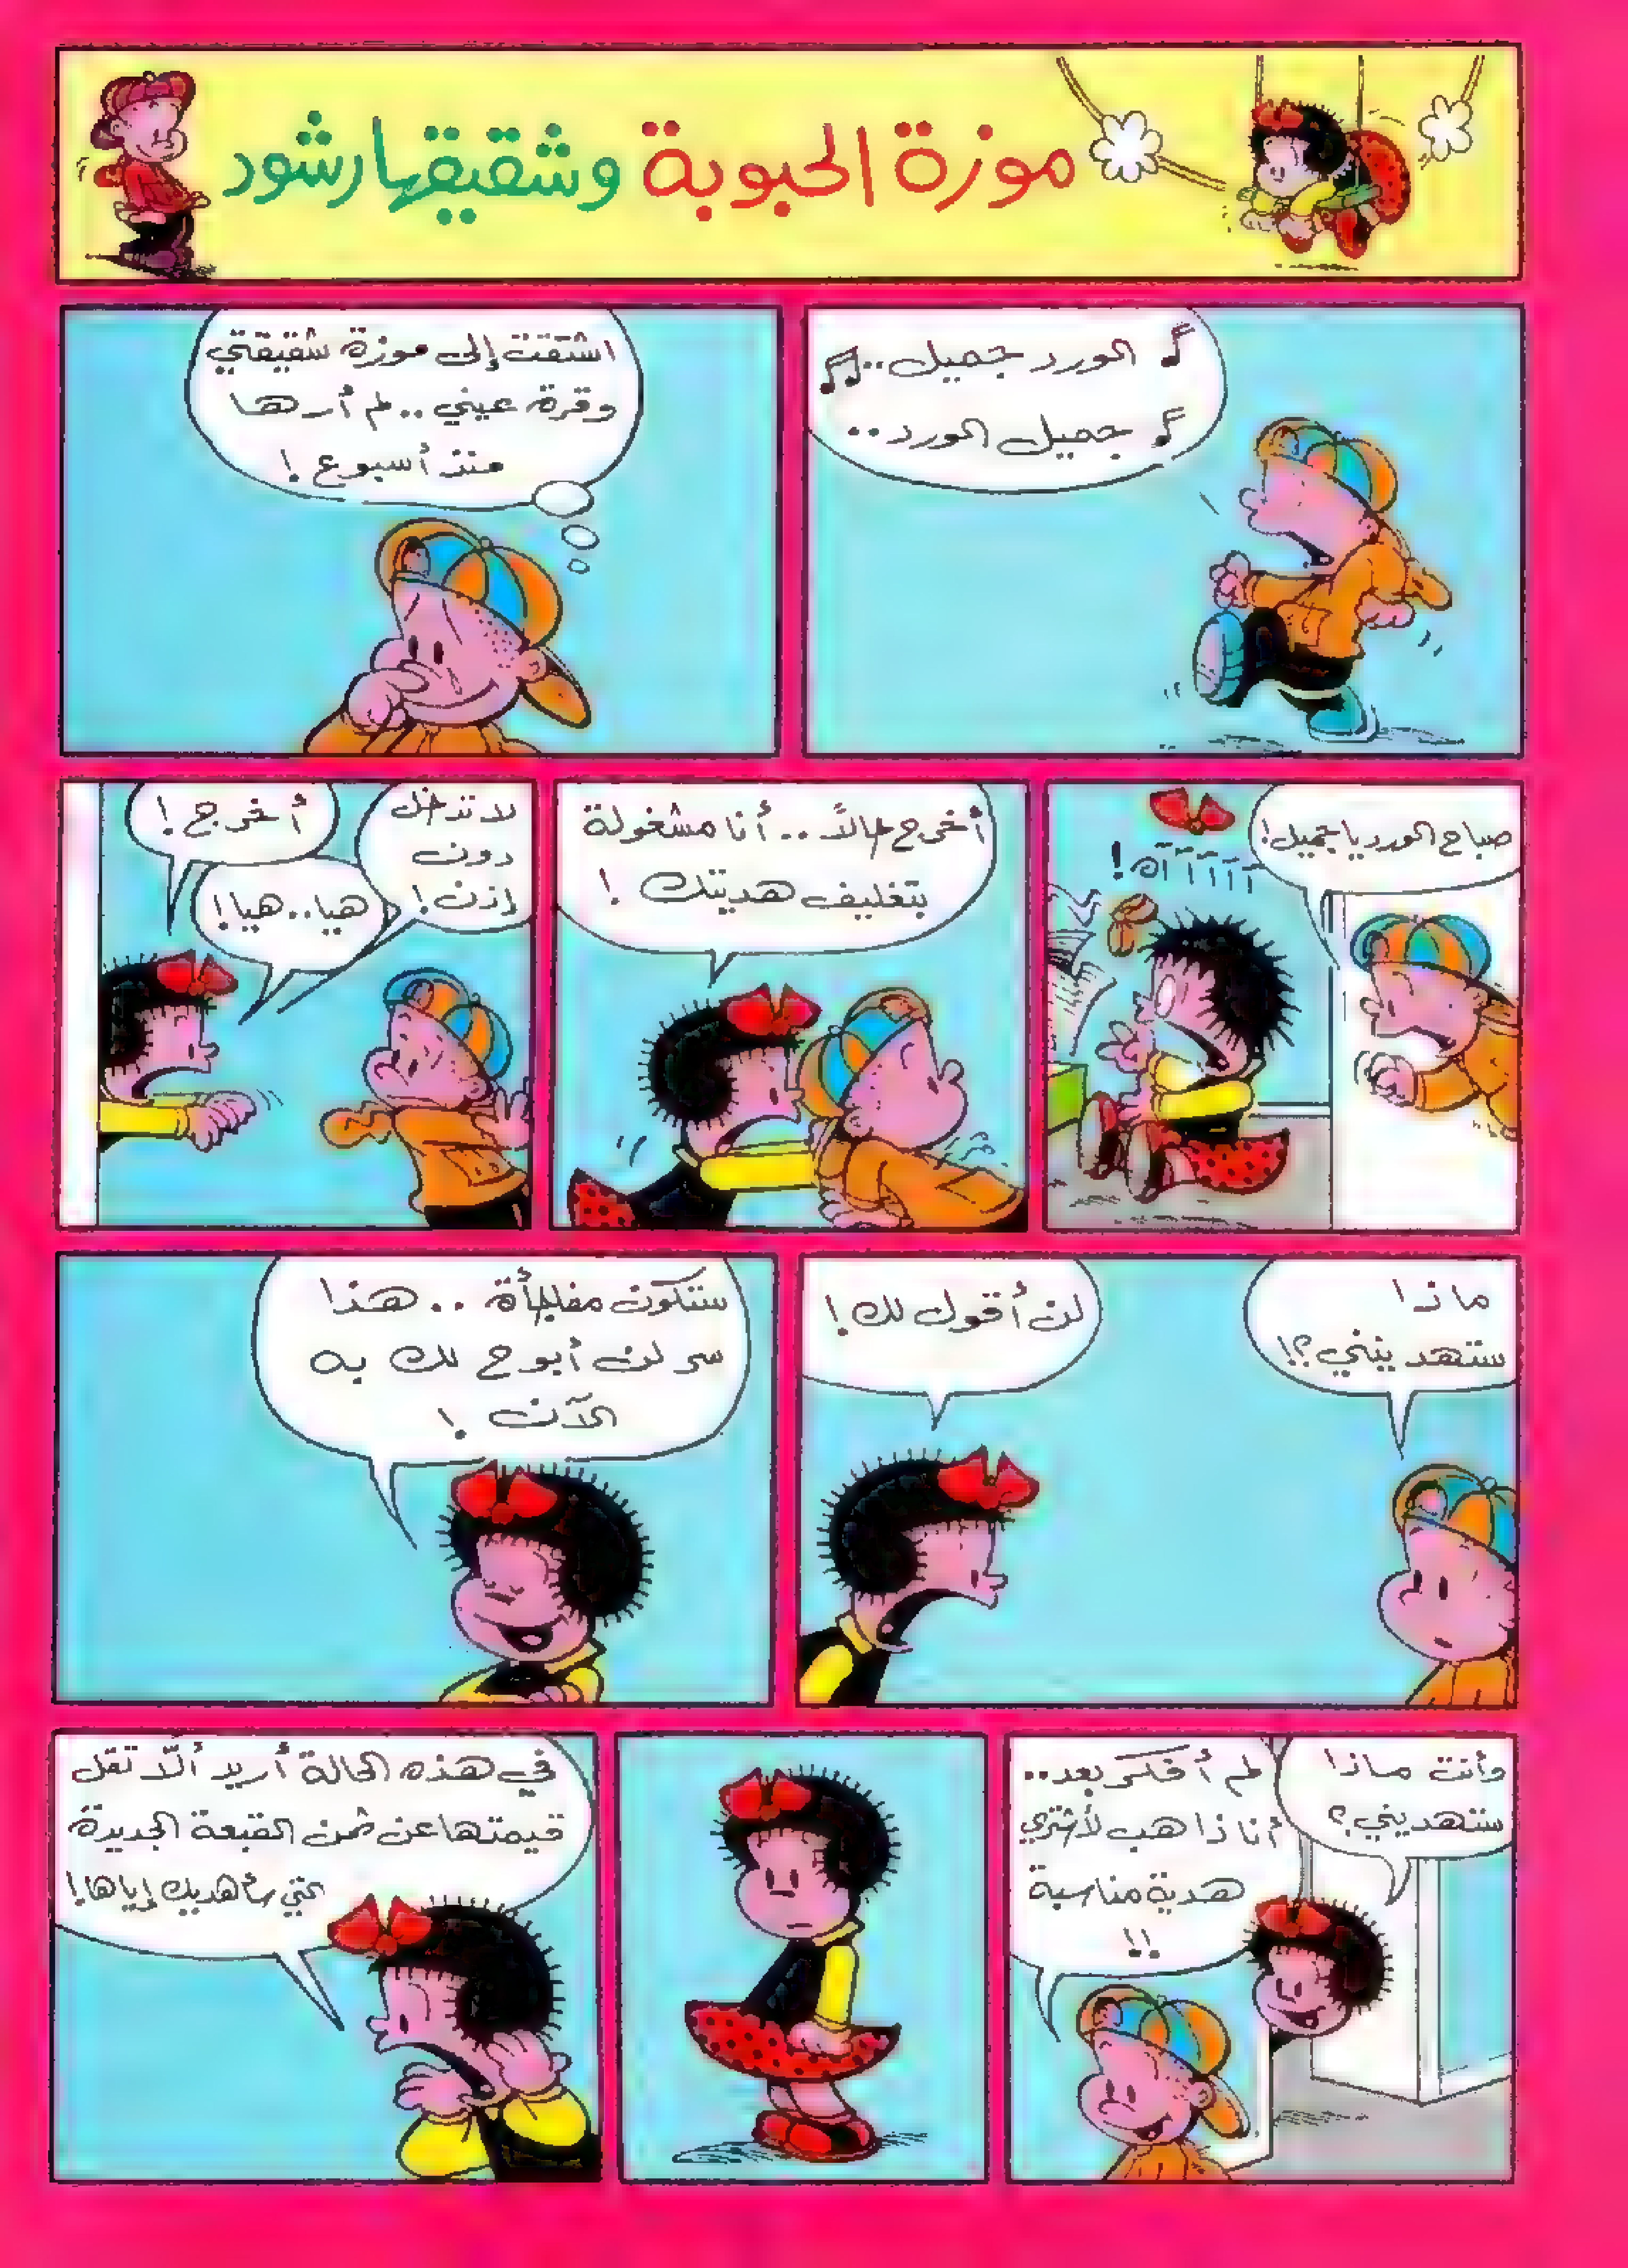 موزة الحبوبة وشقيقها رشود
الورد جميل..
جميل الورد..
اشتقت إلى موزة شقيقتي
وقرة عيني.. لم أرها
منذ أسبوع!
صباح الورد يا جميل!
آآآآآه!
أخرج حالاً.. أنا مشغولة
بتغليف هديتك!
لا تدخل
دون
إذن!
هيا.. هيا!
أخرج!
ماذا
ستهدينني؟!
لن أقول لك!
ستكون مفاجأة.. هذا
سر لن أبوح لك به
الآن!
وأنت ماذا
ستهديني؟
لم أفكر بعد..
أنا ذاهب لأشتري
هدية مناسبة
!!
في هذه الحالة أريد ألّا تقل
قيمتها عن ثمن القبعة الجديدة
التي سأهديك إياها!